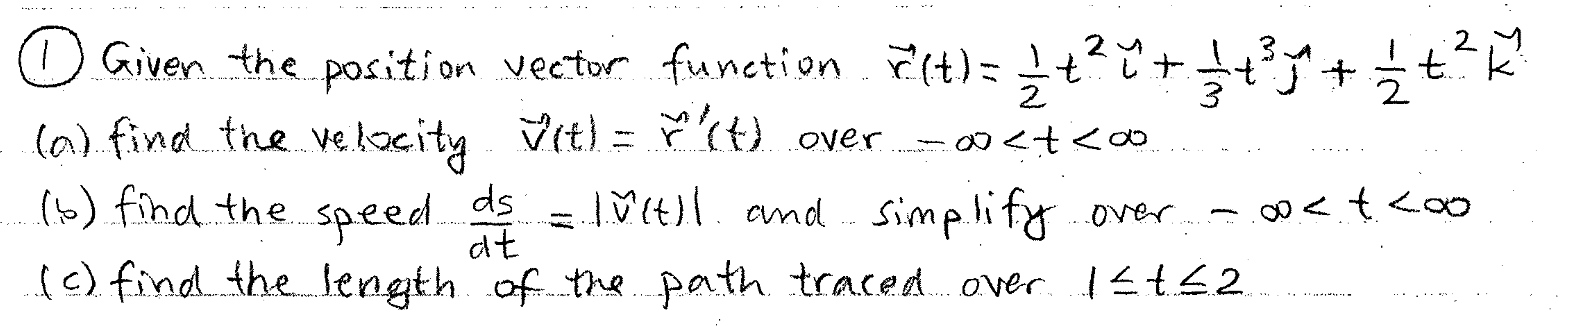 ① Given the position vector function r⃗(t) = 1/2 t² i⃗ + 1/3 t³ j⃗ + 1/2 t² k⃗
(a) find the velocity v⃗(t) = r⃗'(t) over -∞<t<∞
(b) find the speed ds/dt = |v⃗(t)| and simplify over -∞<t<∞
(c) find the length of the path traced over 1≤t≤2